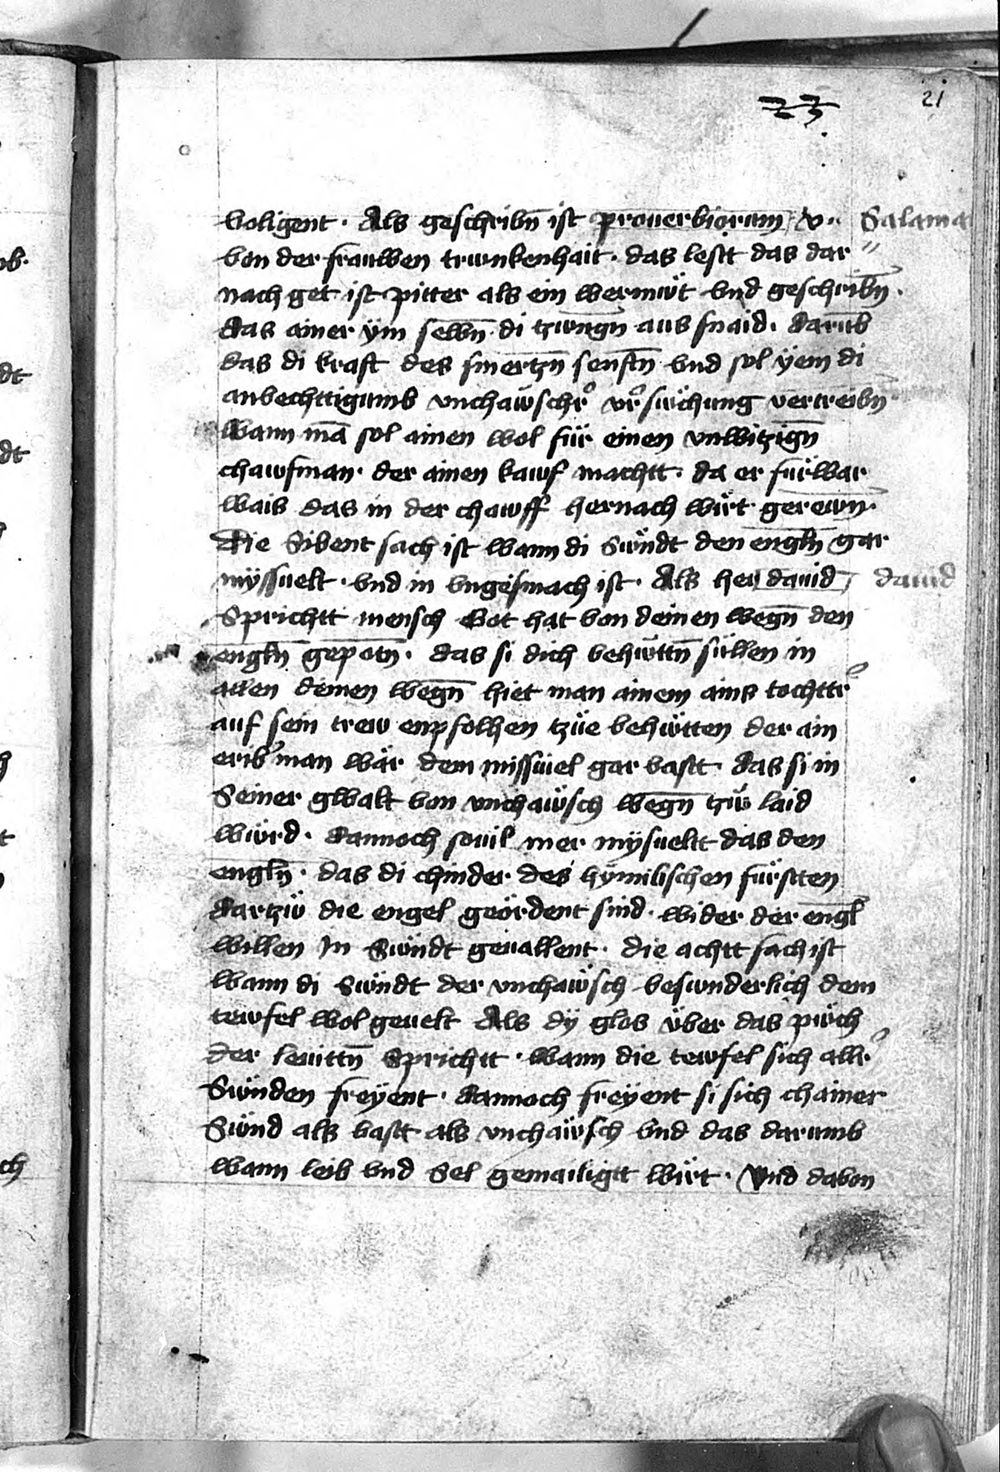 21
voligent · Als geschribn̄ ist prouerbiorum v · Salama
von der frauwen trunkenhait · das lestt das dar
nach get ist pitter als ein wermüt vnd geschribn̄ ·
das ainer ym selbn̄ di tzungn̄ aus snaid · darūb
das di kraft des smertzn̄ senftn̄ vnd sol yem di
anvechttigumb vnchawscher versüchung vertreibn̄
wann mā sol ainen wol für einen vnwitzign̄
chawfman · der ainen kawf machtt · da er fürwar
wais das in der chawff hernach wirt gerewn̄ ·
Die Sibent sach ist wann di Sündt den engln̄ gar
myssuelt · vnd in vngesmach ist · Als her dauid dauid
Sprichtt mensch Got hat von deinen wegn̄ den
engln̄ gepotn̄ · das si dich behüttn̄ süllen in
allen deinen wegn̄ hiet man ainem ains tochtter
auf sein trew enpfolhen tzüe behütten der ain
erib man wär dem missuiel gar vastt das si in
Seiner gwalt von vnchawsch wegn̄ tzw laid
würd · dannoch souil mer mysueltt das den
engln̄ · das di chinder des hymilischen fürstten
dartzü die engel geördent sind · wider der engl̄
willen In Sündt geuallent · die achtt sach ist
wann di Sündt der vnchawsch besunderlich dem
tewfel wolgeuelt Als dy glos über das püch
der leuittn̄ Sprichtt · wann die tewfel sich aller
Sünden freyent · dannoch freyent si sich chainer
Sünd als vastt als vnchawsch vnd das darumb
wann leib vnd Sel gemailigtt wirt · Vnd davon